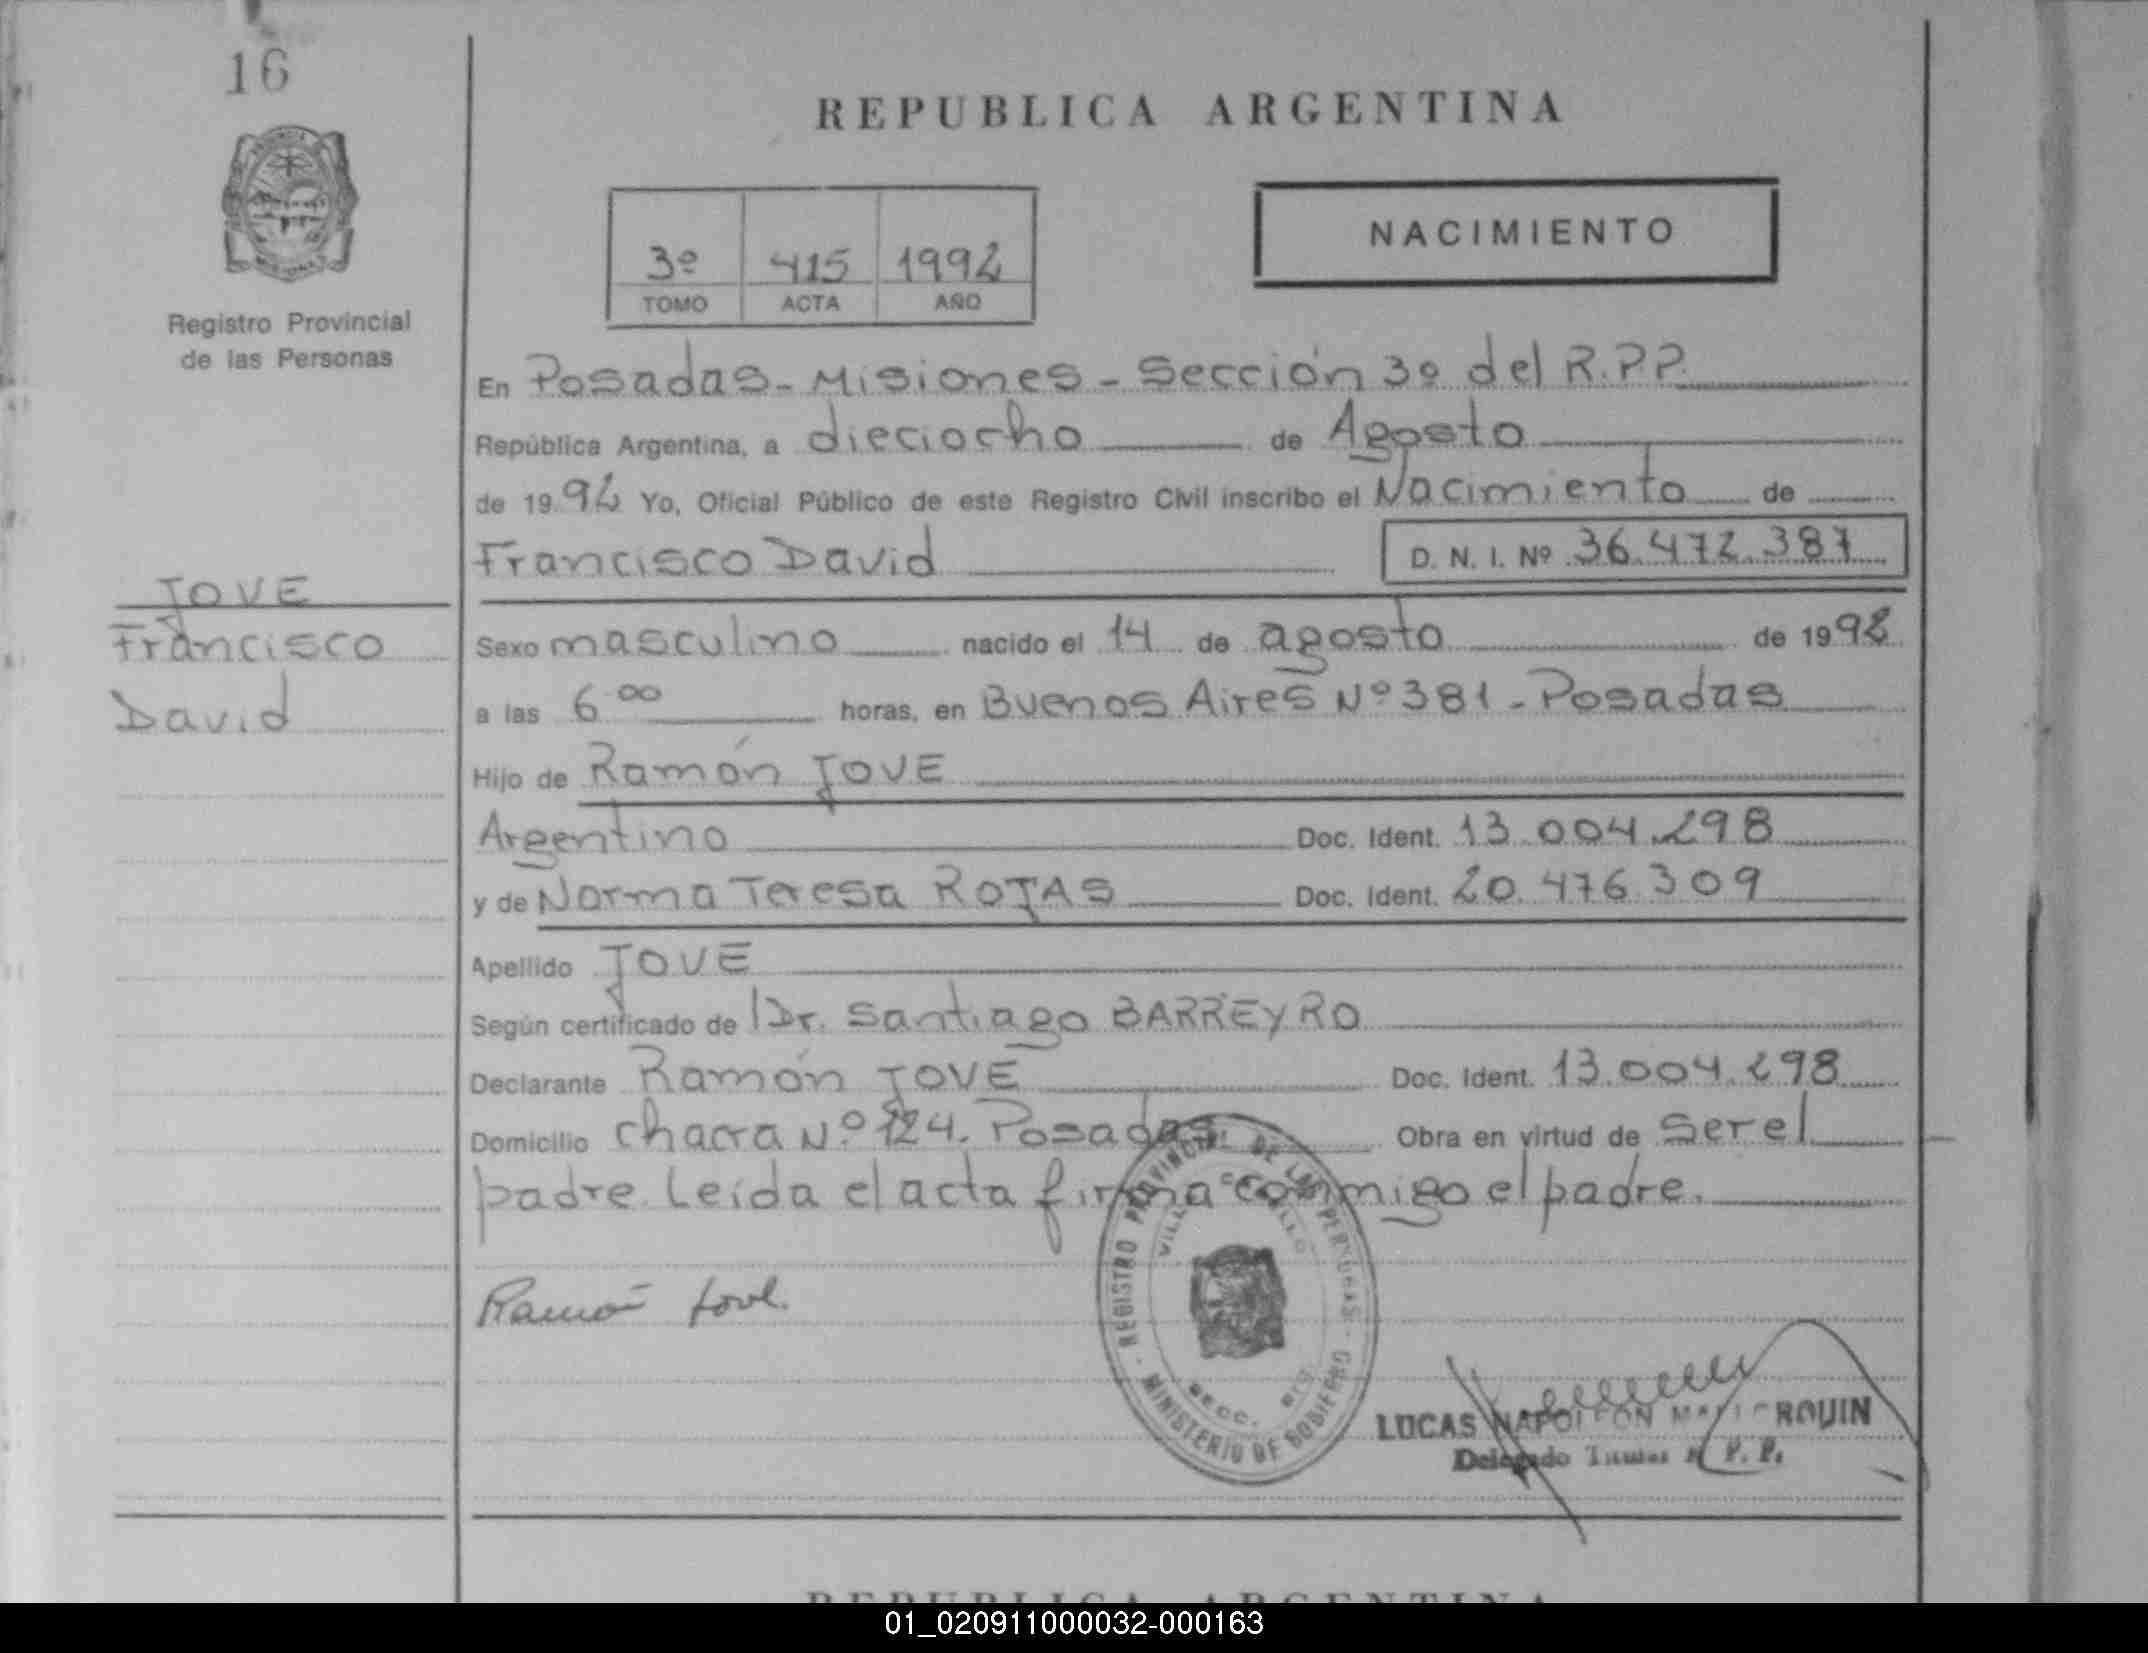 16
REPUBLICA ARGENTINA
NACIMIENTO
3º 415 1992
TOMO ACTA AÑO
Registro Provincial
de las Personas
En Posadas - Misiones - Sección 3º del R.P.P.
República Argentina, a dieciocho de Agosto
de 1992 Yo, Oficial Público de este Registro Civil inscribo el Nacimiento de
Francisco David D. N. I. Nº 36.472.387
JOVE
Francisco
David
Sexo masculino nacido el 14 de agosto de 1992
a las 6 00 horas, en Buenos Aires Nº 381 - Posadas
Hijo de Ramón JOVE
Argentino Doc. Ident. 13.004.298
y de Norma Teresa ROJAS Doc. Ident. 20.476.309
Apellido JOVE
Según certificado de Dr. Santiago BARREYRO
Declarante Ramón JOVE Doc. Ident. 13.004.298
Domicilio chacra Nº 124. Posadas Obra en virtud de Ser el
padre. Leída el acta firma conmigo el padre.
Ramón Jove.
REGISTRO PROVINCIAL DE LAS PERSONAS - MINISTERIO DE GOBIERNO
SECC.
LUCAS NAPOLEON
Delegado R.P.P.
REPUBLICA ARGENTINA
01_020911000032-000163